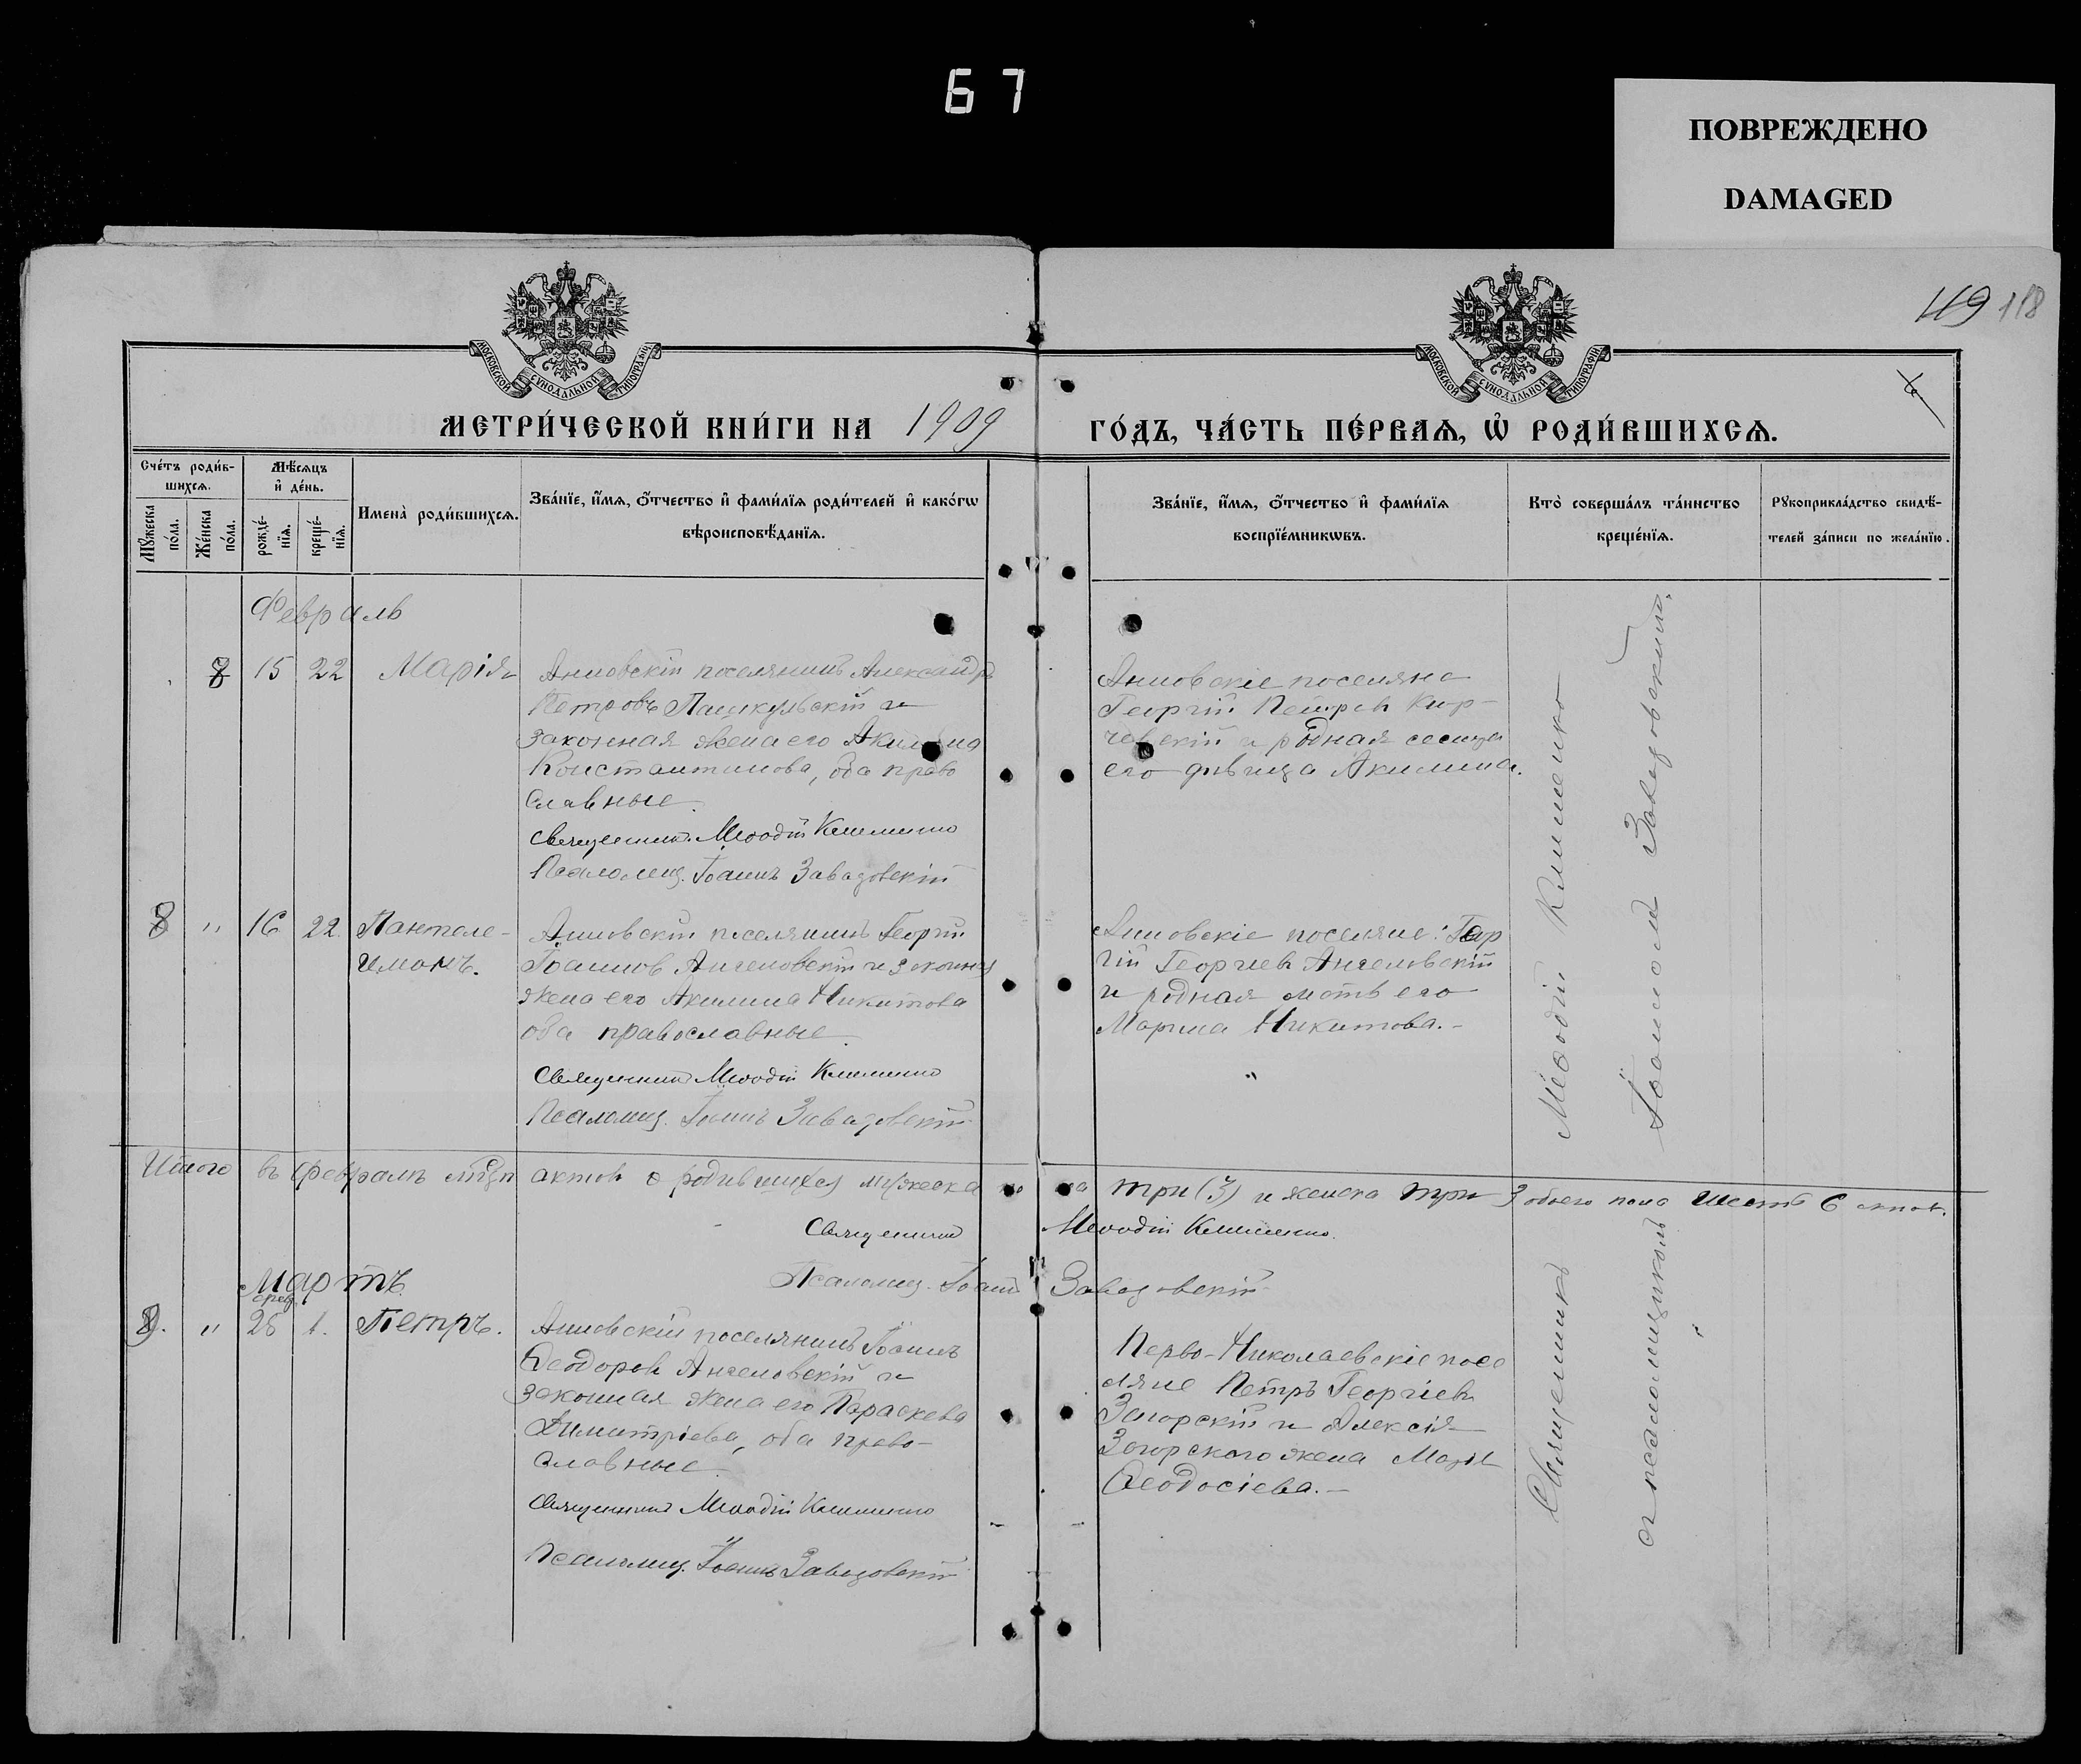 67
ПОВРЕЖДЕНО
DAMAGED
119 118
МОСКОВСКОЙ СѴНОДАЛЬНОЙ ТИПОГРАФІИ
МОСКОВСКОЙ СѴНОДАЛЬНОЙ ТИПОГРАФІИ
МЕТРИ́ЧЕСКОЙ КНИ́ГИ НА 1909
ГО́ДЪ, ЧА́СТЬ ПЕ́РВАѦ, Ѡ҆ РОДИ́ВШИХСѦ.
Сче́тъ роди́в-
шихсѧ.
Мѣ́сѧцъ
и҆ де́нь.
Мꙋ́жеска
по́ла.
Же́нска
по́ла.
рожде́-
нїѧ.
креще́-
нїѧ.
Имена̀ роди́вшихсѧ.
Зва́нїе, и҆́мѧ, ѻ҆́тчество и҆ фами́лїѧ роди́телей и҆ како́гѡ
вѣроисповѣ́данїѧ.
Зва́нїе, и҆́мѧ, ѻ҆́тчество и҆ фами́лїѧ
воспрїе́мникѡвъ.
Кто̀ соверша́лъ та́инство
креще́нїѧ.
Рꙋкоприкла́дство свидѣ́-
телей за́писи по жела́нїю.
Февраль
15 22 Марія
поселянинъ Александръ
Петровъ и
законная жена его
Константинова, оба право
славные.
Священникъ Меѳодій Клименко
Псаломщ. Іоаннъ Завадовскій
поселяне
Георгій Петровъ Кюр-
чевскій и родная сестра
его дѣвица Акилина.
8 " 16 22 Пантеле-
имонъ.
поселянинъ Георгій
Іоанновъ Ангеловскій и законная
жена его Акилина Никитова
оба православные.
Священникъ Меѳодій Клименко
Псаломщ. Іоаннъ Завадовскій
поселяне: Геор
гій Георгіевъ Ангеловскій
и родная мать его
Марина Никитова.-
"
Итого въ февралѣ мцѣ актовъ о родившихся мужеска по ла три (3) и женска три 3 обоего пола шесть 6 актов.
Священникъ Меѳодій Клименко.
Псаломщ. Іоаннъ Завадовскій
Мартъ
февр.
9. " 28 1. Петръ.
поселянинъ Іоаннъ
Ѳеодоровъ Ангеловскій и
законная жена его Параскева
Димитріева, оба право-
славные.
Священникъ Меѳодій Клименко
Псаломщ. Іоаннъ Завадовскій
Перво-Николаевскіе посе
ляне Петръ Георгіевъ
Загорскій и Алексія
Загорскаго жена Марія
Ѳеодосіева.-
Священникъ Меѳодій Клименко
с псаломщикомъ Іоанномъ Завадовскимъ.